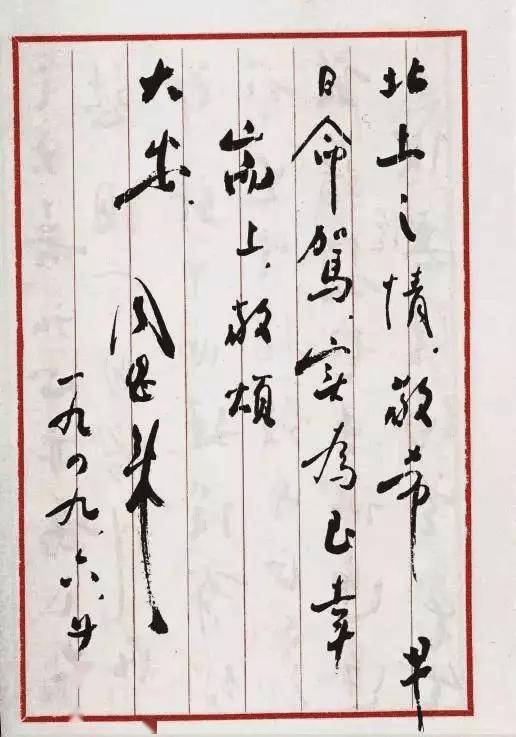 北上之情,敬希 早
日命駕,實為至幸
耑上,敬頌
大安.
周恩来
一九四九.六.廿